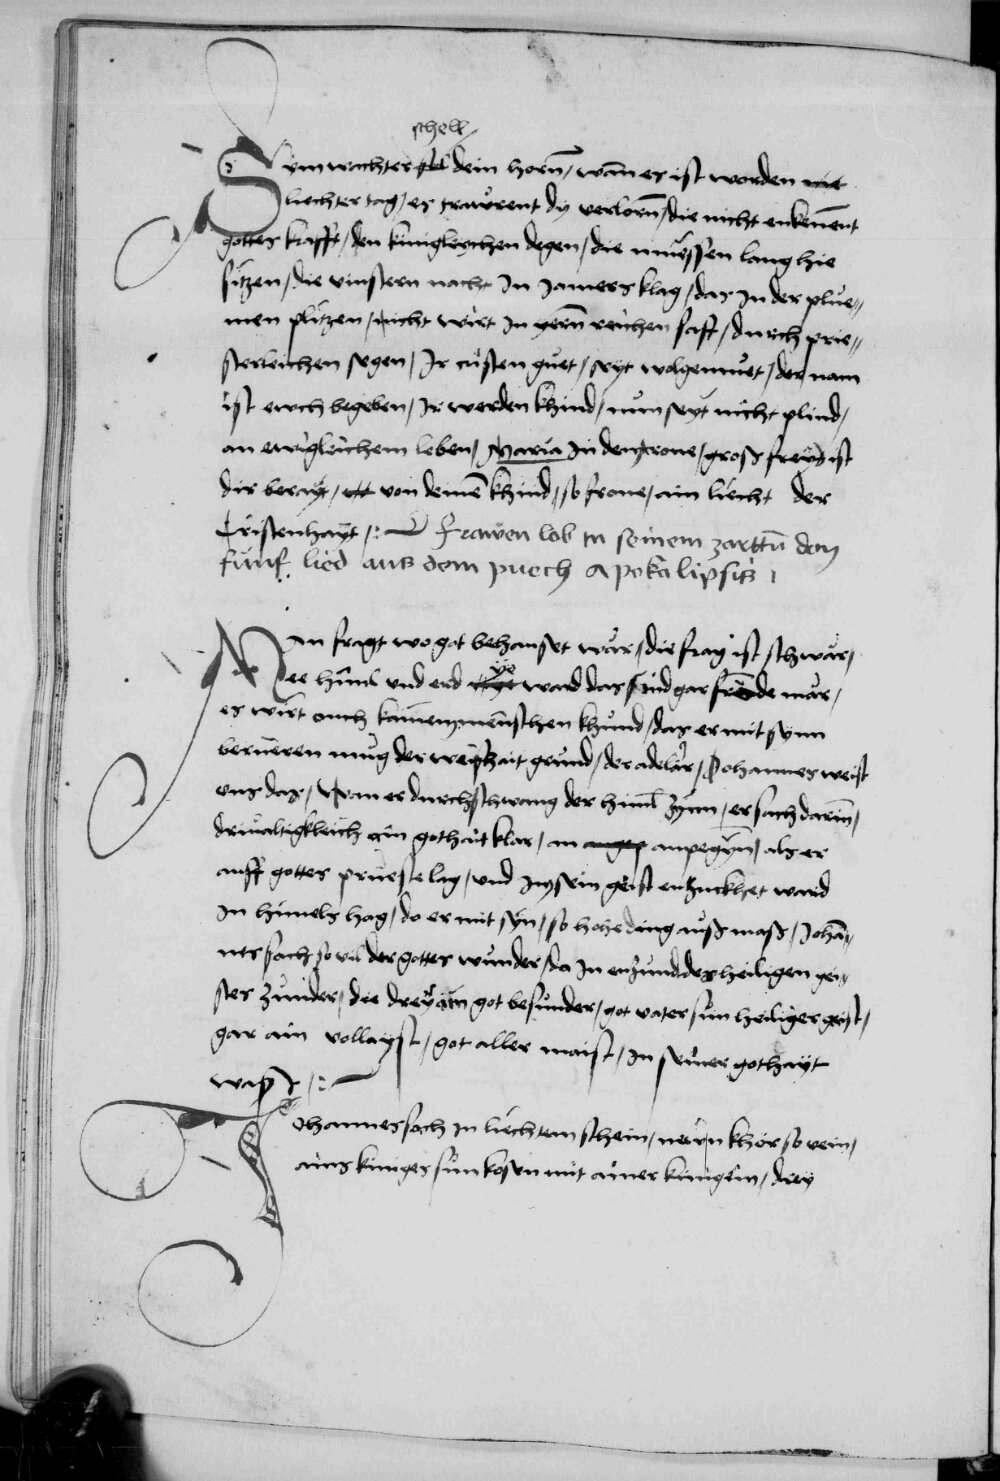 schell
Sym wachter dein horn / wann es ist worden
liechter tag / es traurent dy verlorn / die nicht enkennent
gottes krafft / den kunigleychen degen / die muessen lang hie
sitzen / die vinstern nacht In Jamers klag / das In der plue//
men plitzen / nicht wirt In yern reichen saft / durch prie//
sterleichen segen / Ir cristen guet / seyt wolgemuet / der nam
ist ewch begeben / Ir werden khind / nun seyt nicht plind /
an ewigleichem leben / Maria In dem trone / gross freyd ist
dir berayt / von deinem khind / so frone / ain liecht der
Cristenhayt /:~ Frawen lob in seinem zarttn don
funf lied aus dem puech Apokalipsis
Man fragt wo got behauset war / die frag ist schwar /
Ee himl und erd ye ward das sind gar fremde mar /
es wirt auch kainem menschen khund / das er mit synn
berueren mug der weyshait grund / der adelar / Johannes weist
uns das / wann er durchschwang der himl zynn / er sach darinn /
drivaltigkleich ain gothait klar / an anpegynn / als er
auff gottes prueste lag / und Im sein geist enzuckhet ward
In himels hag / do er mit syn / so hohe ding auss mass / Johan//
nes sach so vil der gottes wunder / da In enzund des heiligen gei//
stes zunder / die drey ain got besunder / got vater sun heiliger geist /
gar ain vollayst / got aller maist / In seiner gothayt
was /:~
Johannes sach In liechtem schein / newn khor so rein /
ains kuniges sun kosen mit ainer kunigein / drey